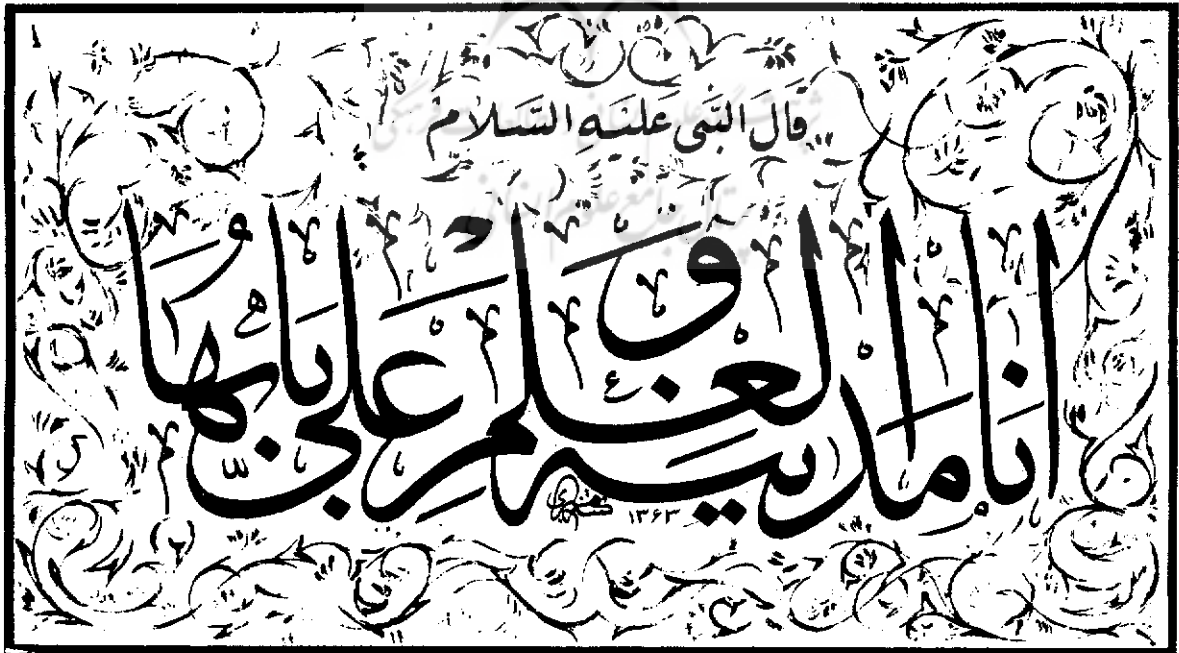 قَالَ النَّبِی عَلَیْهِ السَّلَامُ
اَنَا مَدینَةُ العِلمِ وَ عَلیٌّ بَابُهَا
۱۳۶۳